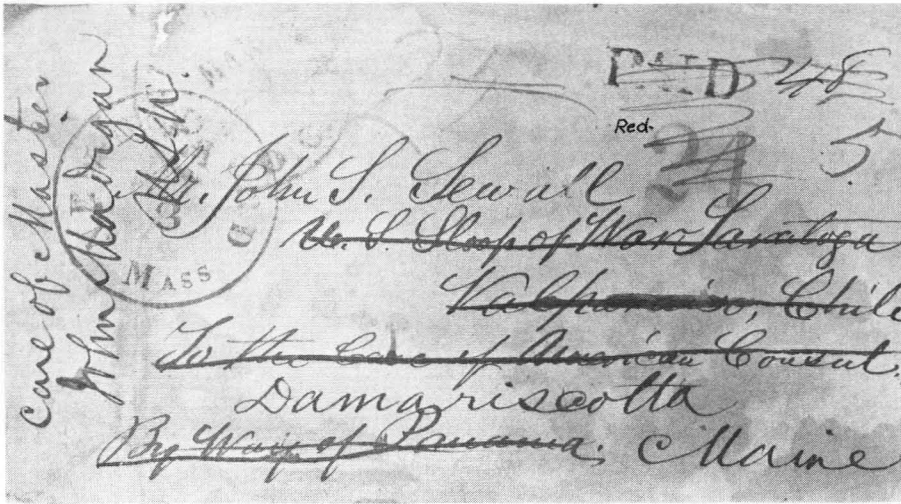 care of Master
John Madigan
PAID 48
Red.
24 5
Mr. John S. Sewall
U. S. Sloop of War Saratoga
Valparaiso, Chile
To the Care of American Consul.
Damariscotta
By Way of Panama; Maine
MASS